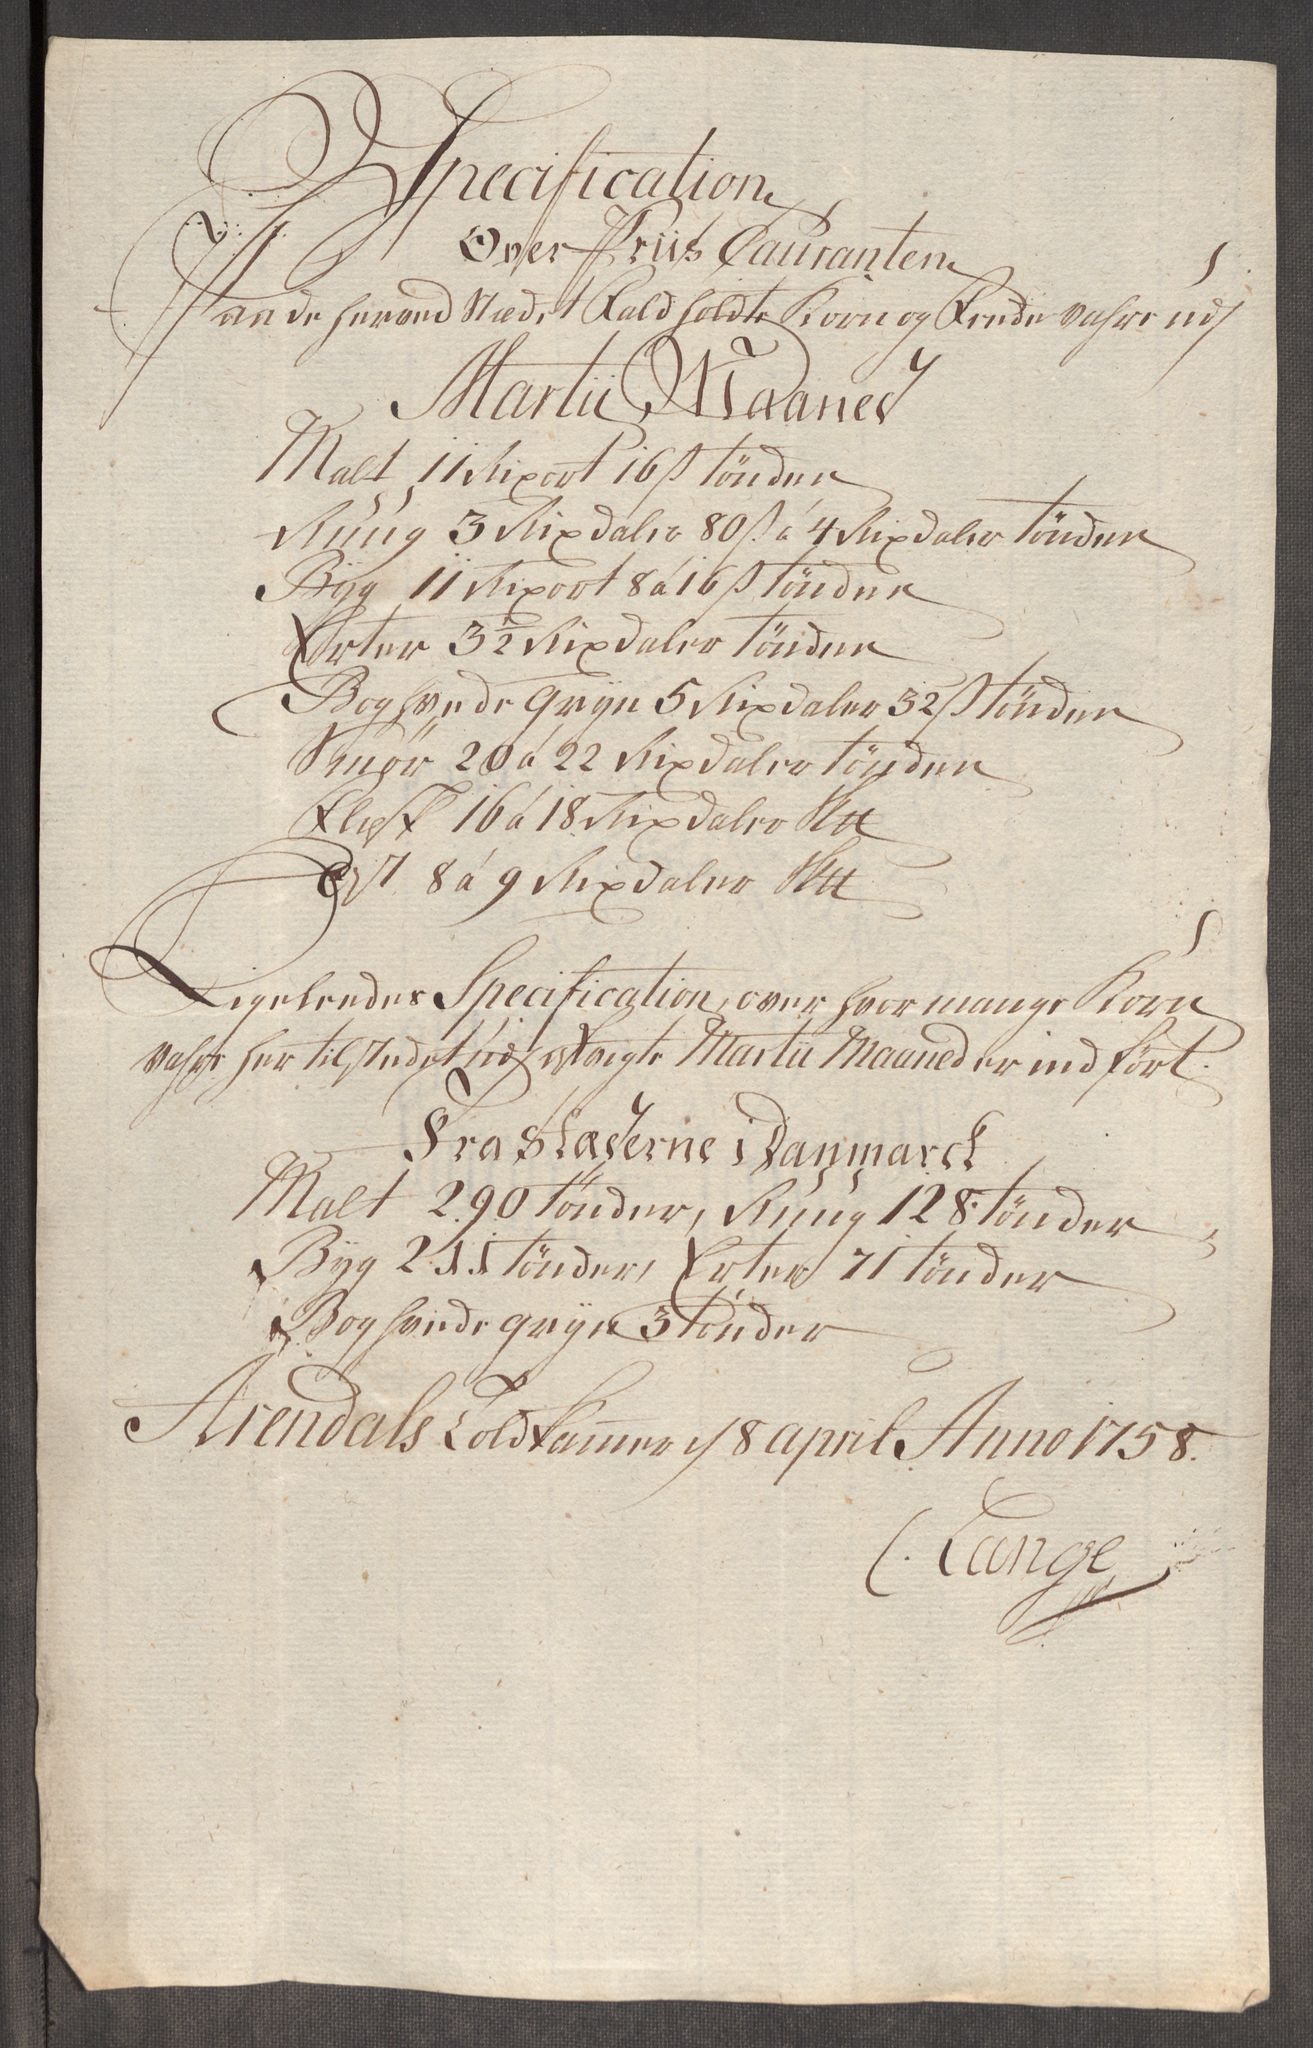 Specification
Over Priis Couranten
Paa de her ved Stædet Fald holdte Korn og Fende vahre udj
Martii Maaned
Malt 11 Rixort 16 s tønder
Rüüg 3 Rixdaler 80 s á 4 Rixdaler tönder
Byg 11 Rixort 8 á 16 s tönder
Erter 3½ Rixdaler tönder
Boghvede gryn 5 Rixdaler 32 s tönder
Smör 20 á 22 Rixdaler tönder
Flesk 16 á 18 Rixdaler Sk℔
Ost 8 á 9 Rixdaler Sk℔
Ligeleedes Specification, over hvor mange Korn
vahre her til stedet udj Martii Maaned er ind fört.
Fra Stæderne i Danmarck
Malt 290 tönder, Rüüg 128 tönder
Byg 211 tönder, Erter 71 tönder
Boghvede gryn 3 tönder
Arendals Toldkammer d 8 april Anno 1758.
C. Lange